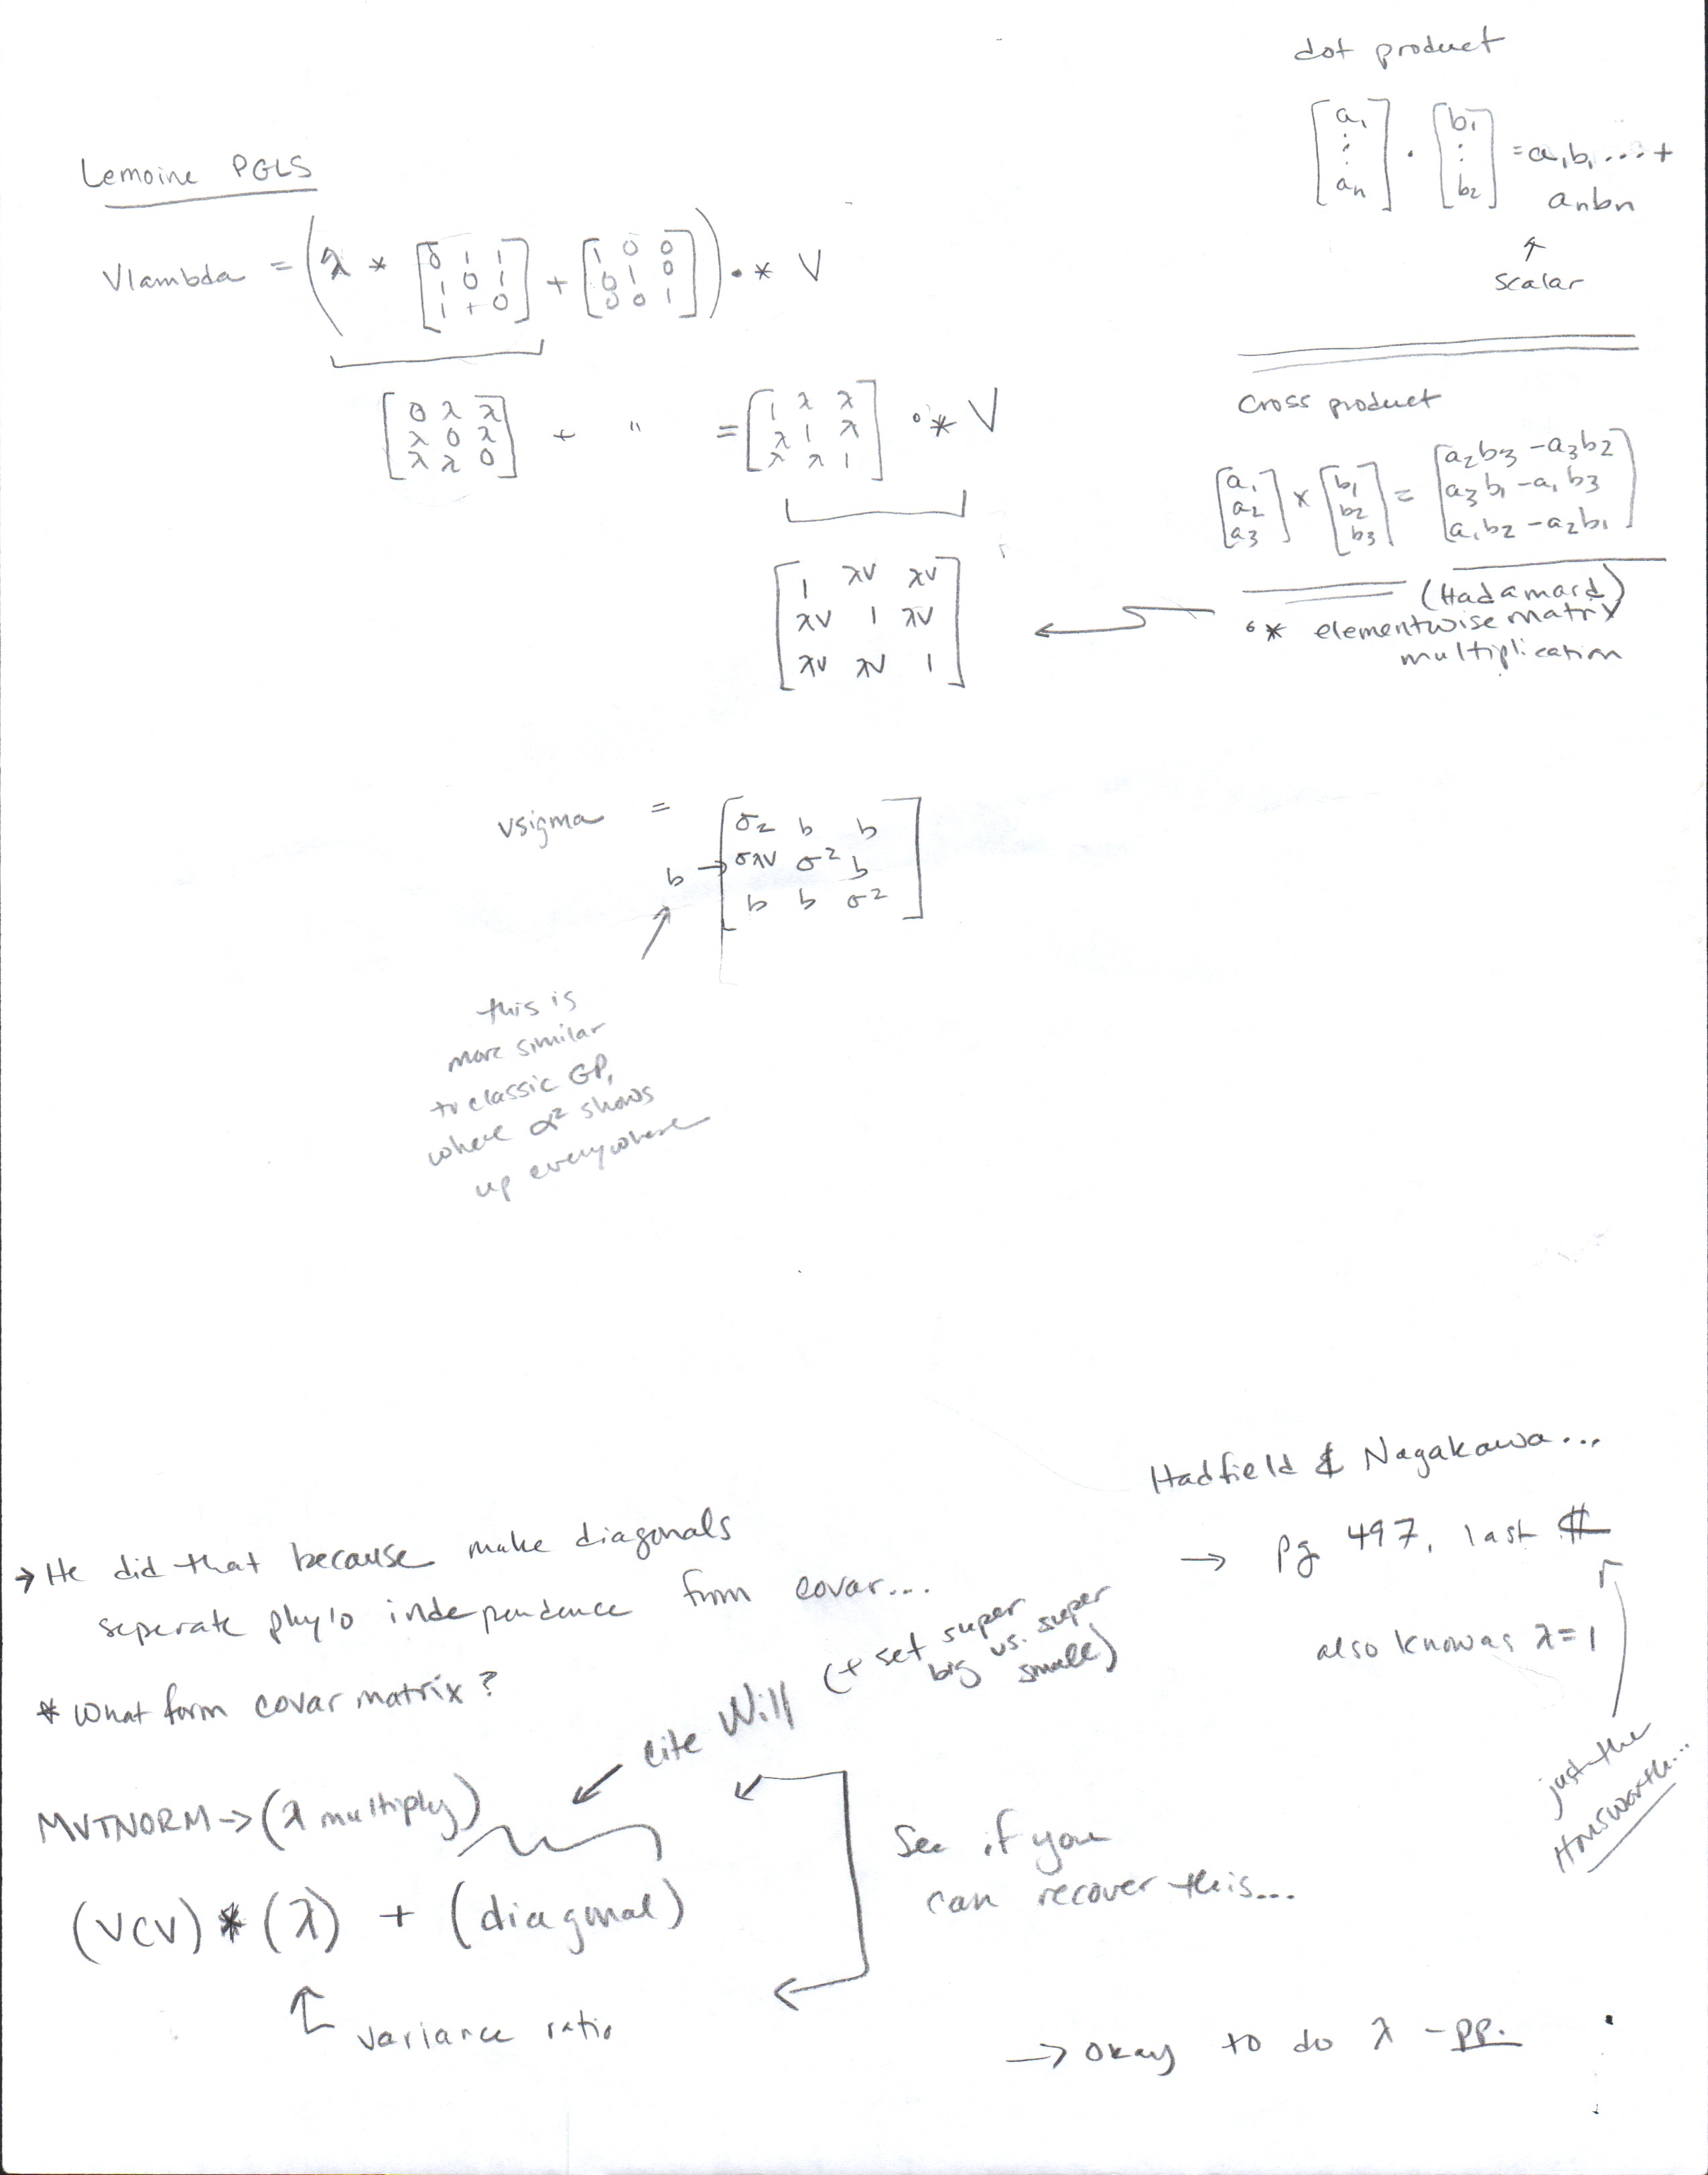 dot product
[a₁ ⋮ aₙ] · [b₁ ⋮ b₂] = a₁b₁ ... + aₙbₙ
↑
scalar
Lemoine PGLS
Vlambda = (λ * [0 1 1
1 0 1
1 1 0] + [1 0 0
0 1 0
0 0 1]) .* V
[0 λ λ
λ 0 λ
λ λ 0] + " = [1 λ λ
λ 1 λ
λ λ 1] .* V
[1 λV λV
λV 1 λV
λV λV 1]
cross product
[a₁
a₂
a₃] × [b₁
b₂
b₃] = [a₂b₃ - a₃b₂
a₃b₁ - a₁b₃
a₁b₂ - a₂b₁]
(Hadamard)
.* elementwise matrix
multiplication
vsigma = [σ₂ b b
b → σλV σ² b
b b σ²]
this is
more similar
to classic GP,
where α² shows
up everywhere
Hadfield & Nagakawa...
→ pg 497, last ¶
also know as λ=1
just the
→ He did that because make diagonals
seperate phylo independence from covar...
* What form covar matrix?
cite Will (+ set super
big vs. super
small)
MVTNORM → (λ multiply)
(VCV) * (λ) + (diagonal)
↑ variance ratio
See if you
can recover this...
→ okay to do λ - pp.